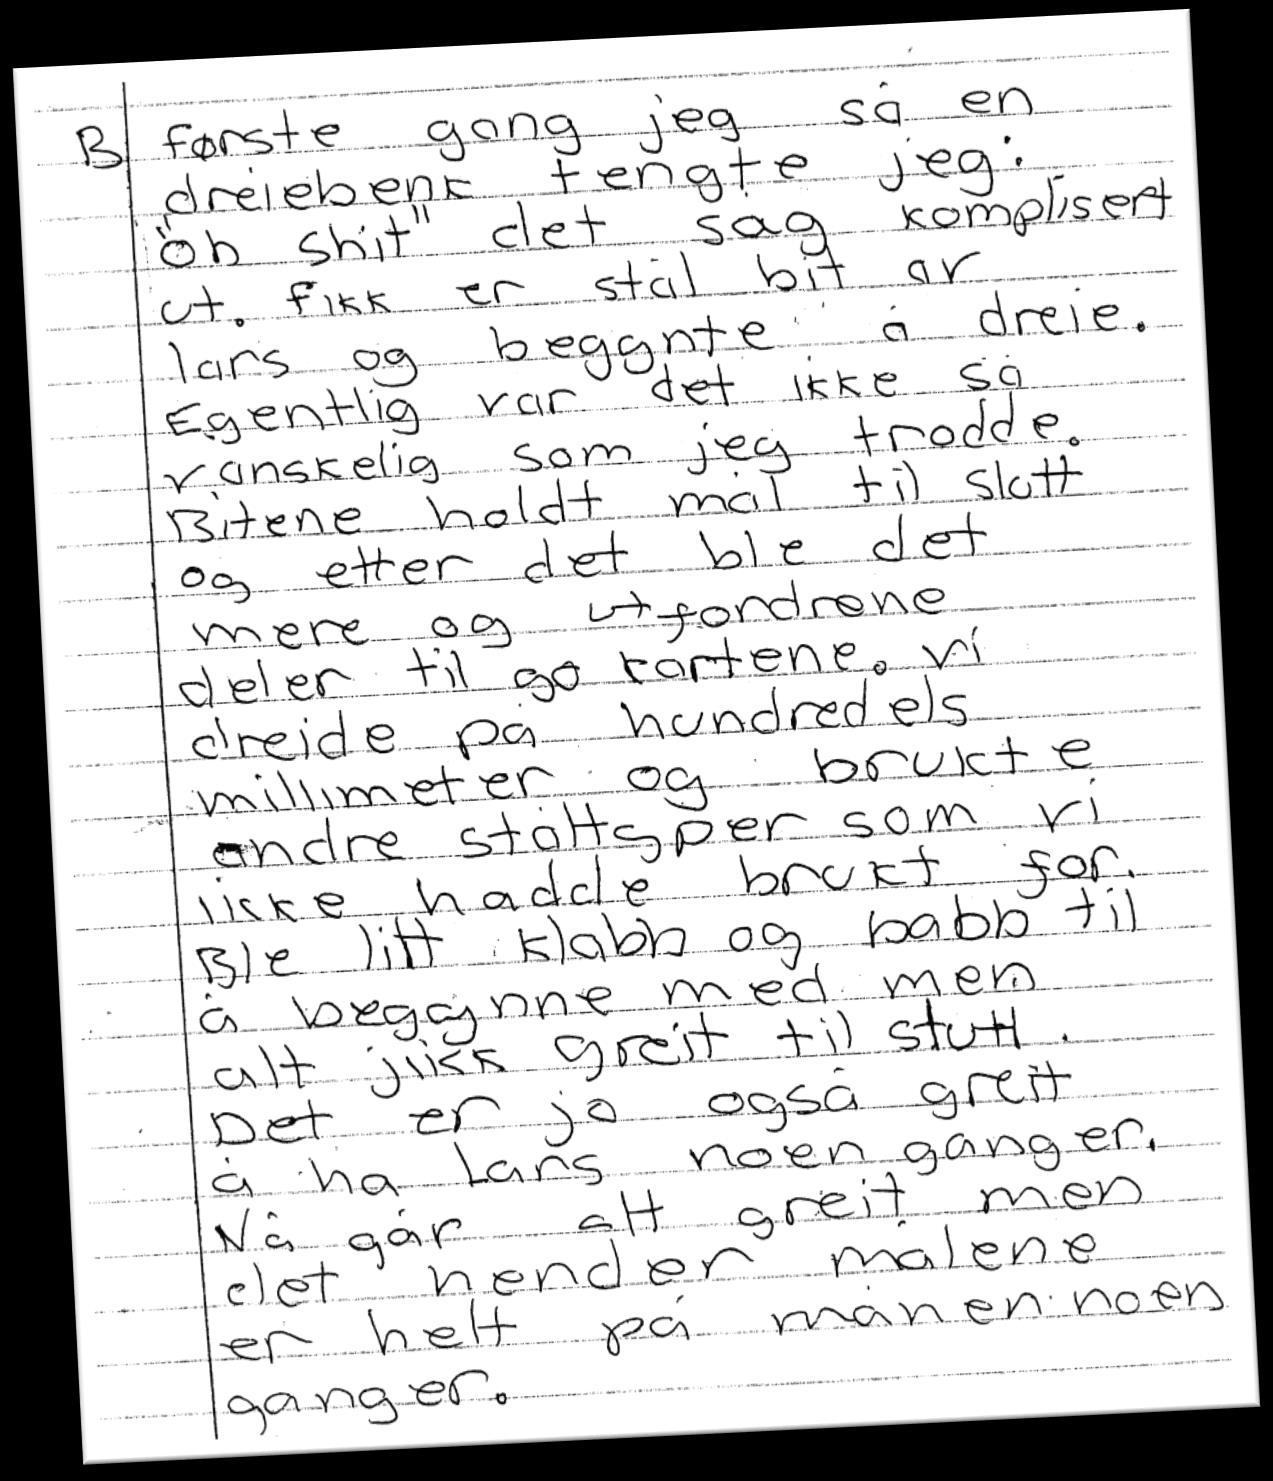 B første gang jeg så en
dreiebenk tengte jeg:
"oh shit" det sag komplisert
ut. fikk er stål bit av
lars og beggnte å dreie.
Egentlig var det ikke så
vanskelig som jeg trodde.
Bitene holdt mål til slutt
og etter det ble det
mere og utfordrene
deler til go kartene. vi
dreide på hundredels
millimeter og brukte
andre ståltsper som vi
ikke hadde brukt for.
Ble litt klabb og babb til
å beggynne med men
alt jikk greit til slutt.
Det er jo også greit
å ha Lars noen ganger.
Nå går alt greit men
det hender målene
er helt på månen noen
ganger.